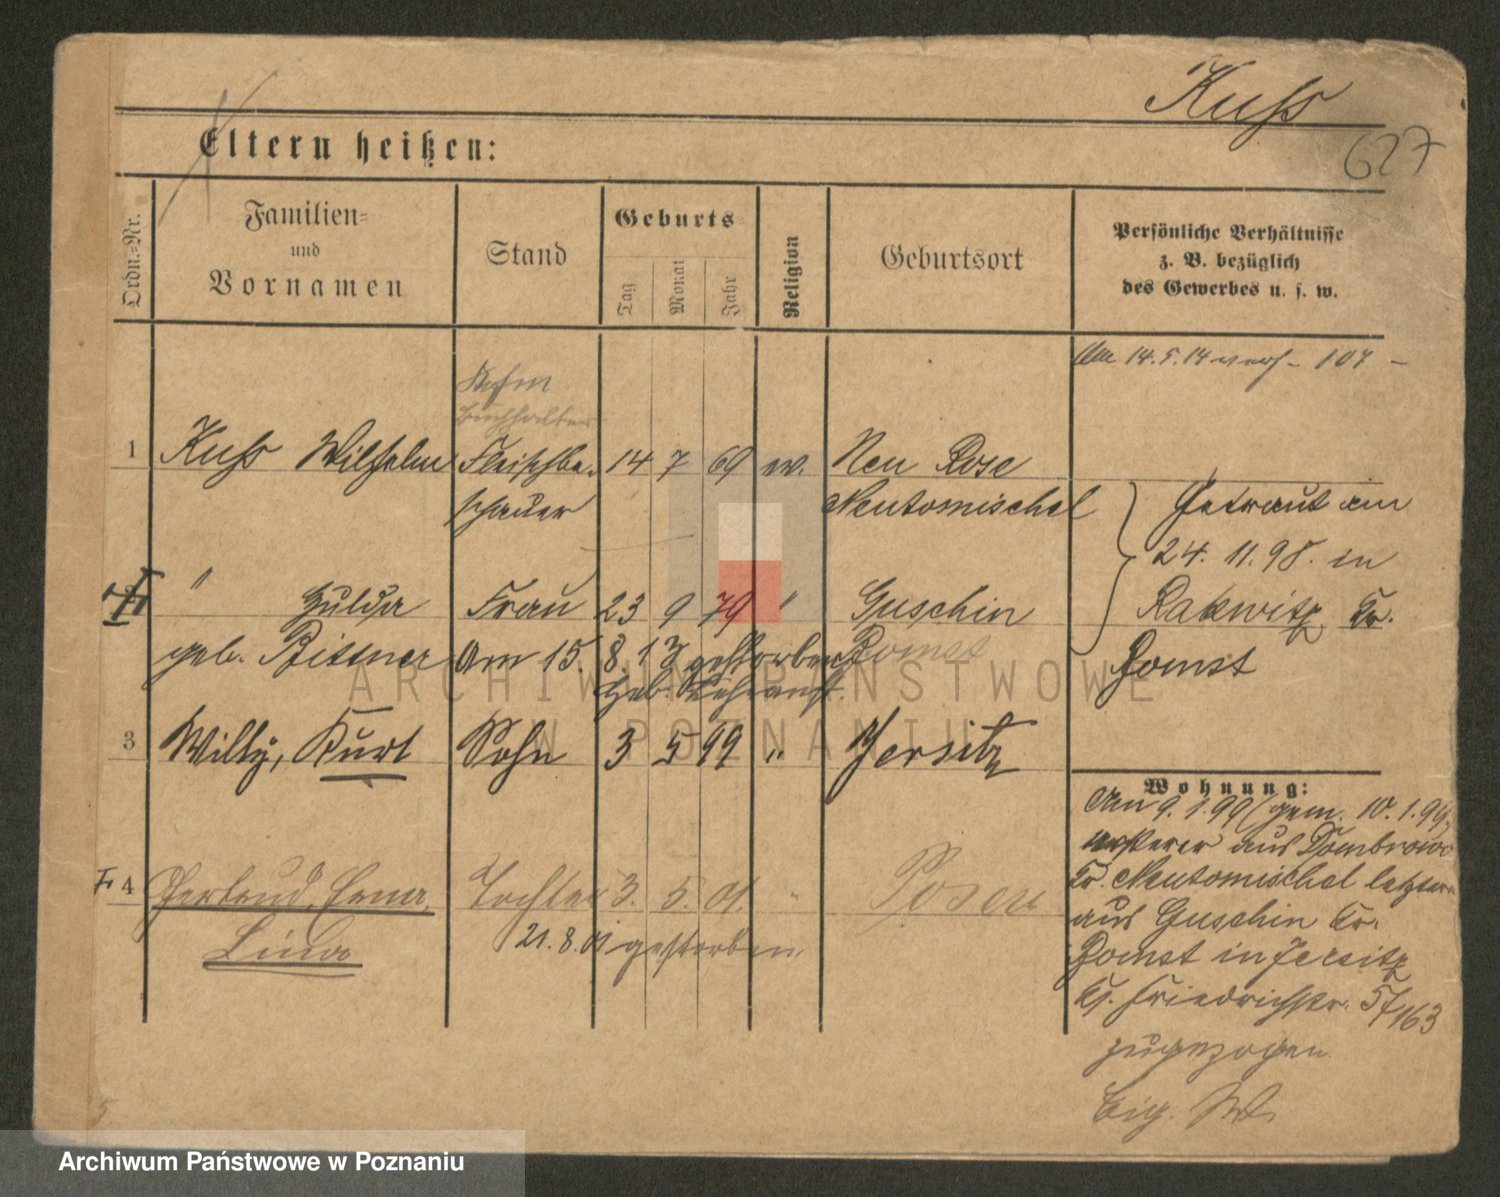 Kuss
627
Eltern heißen:
Ordn.-Nr.
Familien-
und
Vornamen
Stand
Geburts-
Tag
Monat
Jahr
Religion
Geburtsort
Persönliche Verhältnisse
z. B. bezüglich
des Gewerbes u. s. w.
14.5.14 - 107 -
Kfm
Buchhalter
1 Kuss Wilhelm Fleischbe- 14 7 69 ev. Neu Rose
schauer Neutomischel
Getraut am
24. 11. 98. in
Rakwitz Kr.
Bomst
" Hulda Frau 23 9 79 " Guschin
geb. Bittner Am 15. 8. 13 gestorben Bomst
3 Willy, Kurt Sohn 3 5 99 " Jersitz
Wohnung:
Am 9.1.99 (gem. 10.1.99)
ersterer aus Dombrowo
Kr. Neutomischel letztere
aus Guschin Kr.
Bomst in Jersitz
Ks. Friedrichstr. 57/163
zugezogen
4 Gertrud, Erna, Tochter 3. 5. 01. " Posen
Lina 21. 8. 01 gestorben.
ARCHIWUM PAŃSTWOWE
W POZNANIU
Archiwum Państwowe w Poznaniu